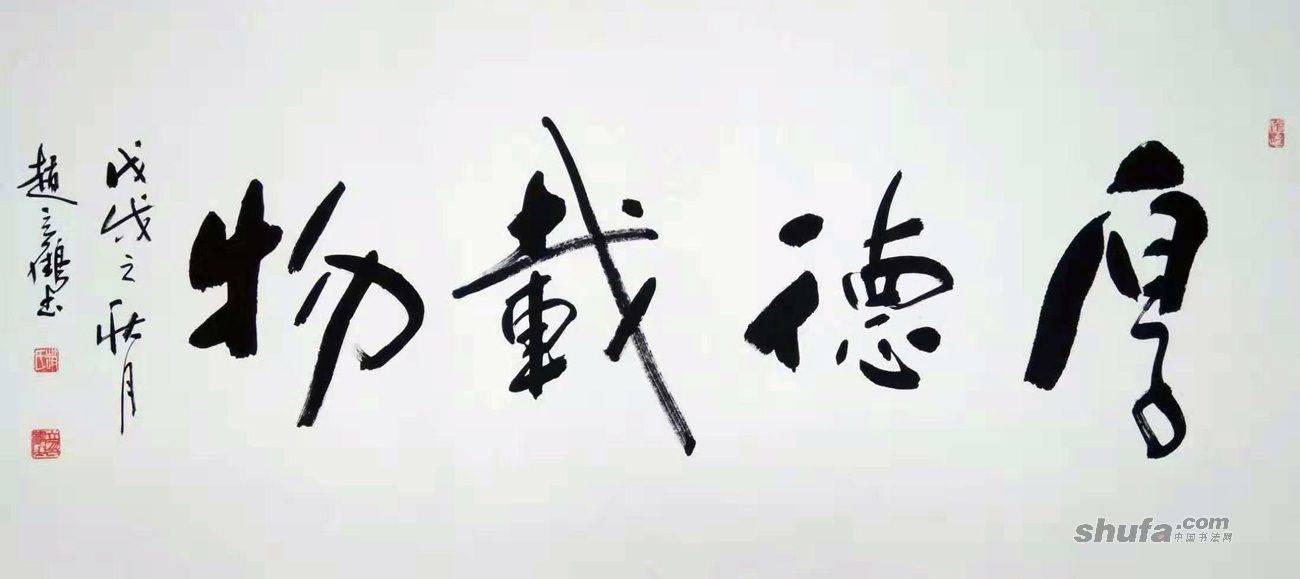 厚德載物
戊戌之秋月
趙 鶴书
shufa.com
中国书法网